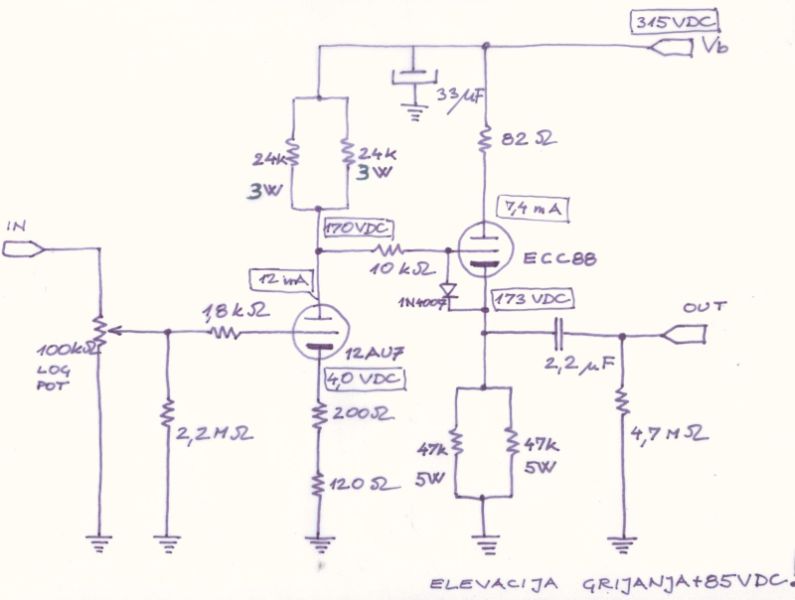 315VDC
Vb
33µF
82Ω
24k
3W
24k
3W
7,4 mA
IN
170VDC
10kΩ
ECC88
12 mA
1N4007
173 VDC
OUT
1,8kΩ
100kΩ
LOG
POT
12AU7
2,2µF
4,0 VDC
2,2MΩ
200Ω
47k
5W
47k
5W
4,7MΩ
120Ω
ELEVACIJA GRIJANJA+85VDC!